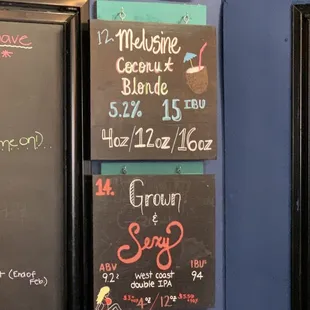 ave
*
meon)..
t (End of
Feb)
12.
Melusine
Coconut
Blonde
5.2% 15 IBU
4oz/12oz/16oz
14.
Grown
&
Sexy
ABV IBU
9.2 94
west coast
double IPA
4oz/12oz